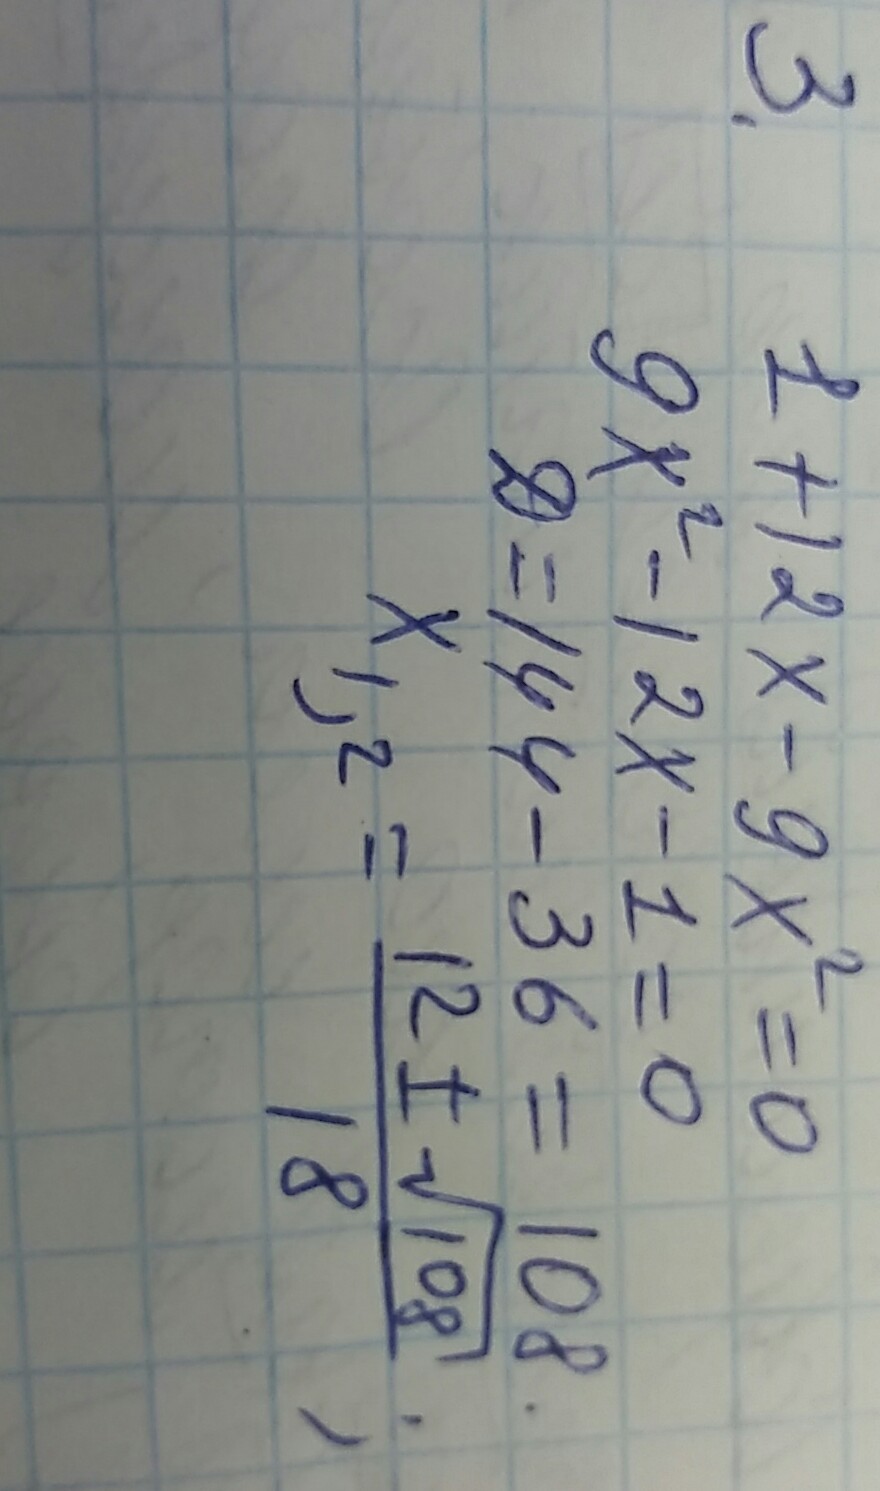 3. 1+12x-9x²=0
9x²-12x-1=0
D=144-36=108.
x₁,₂ = (12±√108)/18 ;